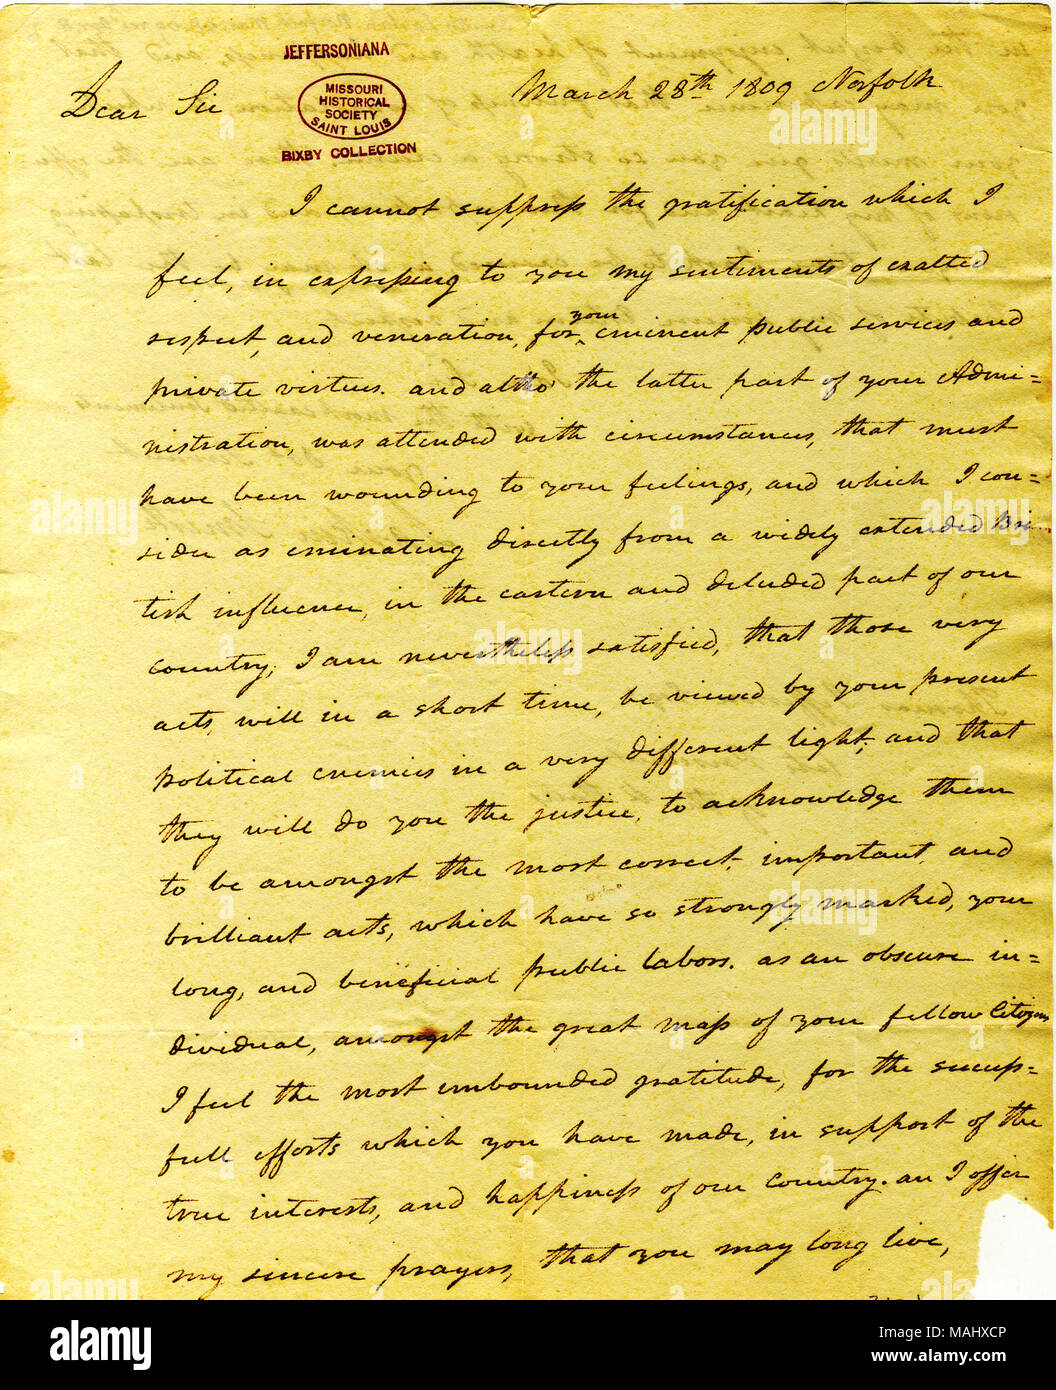 JEFFERSONIANA
MISSOURI
HISTORICAL
SOCIETY
SAINT LOUIS
BIXBY COLLECTION
Dear Sir March 28th 1809 Norfolk
I cannot suppress the gratification which I
feel, in expressing to you my sentiments of exalted
respect, and veneration, for your eminent public services and
private virtues. and altho' the latter part of your Admi=
nistration, was attended with circumstances, that must
have been wounding to your feelings, and which I con=
sider as eminating directly from a widely extended Bri-
tish influence, in the eastern and deluded part of our
country; I am nevertheless satisfied, that those very
acts, will in a short time, be viewed by your present
political enemies in a very different light; and that
they will do you the justice, to acknowledge them
to be amongst the most correct, important, and
brilliant acts, which have so strongly marked, your
long, and beneficial public labors. as an obscure in=
dividual, amongst the great mass of your fellow Citizens
I feel the most unbounded gratitude, for the success=
full efforts which you have made, in support of the
true interests, and happiness of our Country. an I offer
my sincere prayers, that you may long live,
alamy
Image ID: MAHXCP
www.alamy.com